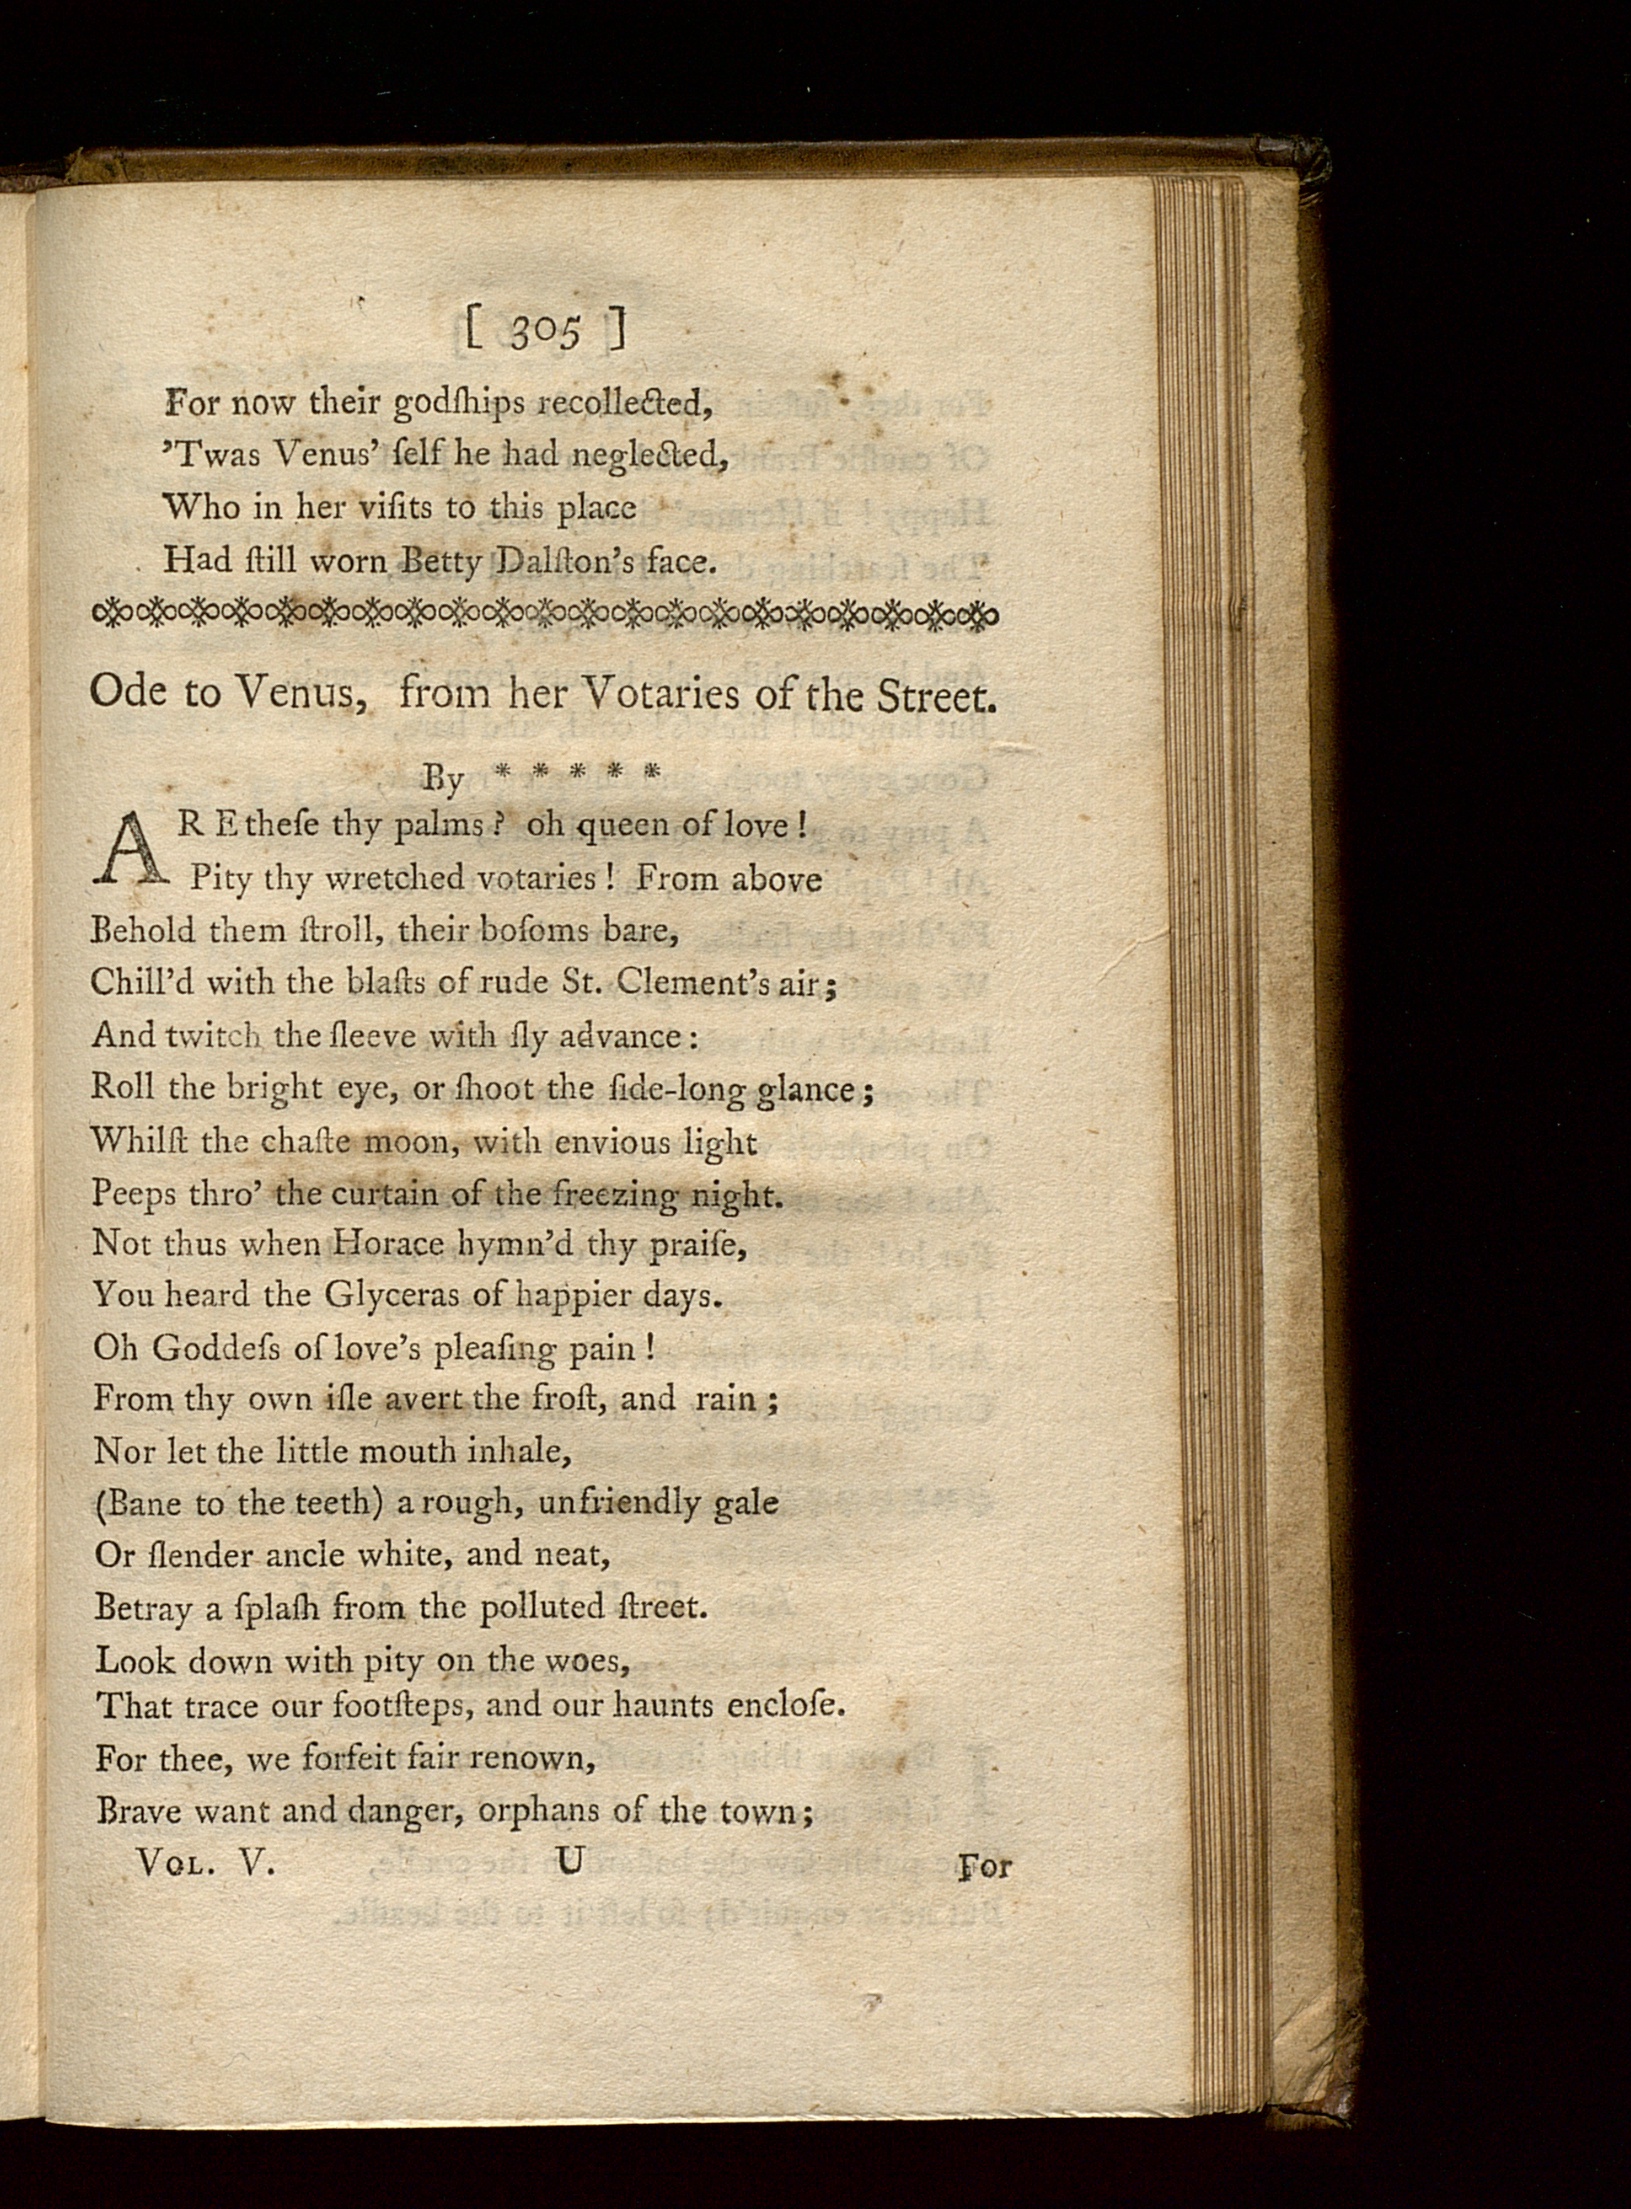 [ 305 ]
For now their godſhips recollected,
’Twas Venus’ ſelf he had neglected,
Who in her viſits to this place
Had ſtill worn Betty Dalſton’s face.
Ode to Venus, from her Votaries of the Street.
By * * * * *
ARE theſe thy palms? oh queen of love!
Pity thy wretched votaries! From above
Behold them ſtroll, their boſoms bare,
Chill’d with the blaſts of rude St. Clement’s air;
And twitch the ſleeve with ſly advance:
Roll the bright eye, or ſhoot the ſide-long glance;
Whilſt the chaſte moon, with envious light
Peeps thro’ the curtain of the freezing night.
Not thus when Horace hymn’d thy praiſe,
You heard the Glyceras of happier days.
Oh Goddeſs of love’s pleaſing pain!
From thy own iſle avert the froſt, and rain;
Nor let the little mouth inhale,
(Bane to the teeth) a rough, unfriendly gale
Or ſlender ancle white, and neat,
Betray a ſplaſh from the polluted ſtreet.
Look down with pity on the woes,
That trace our footſteps, and our haunts encloſe.
For thee, we forfeit fair renown,
Brave want and danger, orphans of the town;
VOL. V. U For